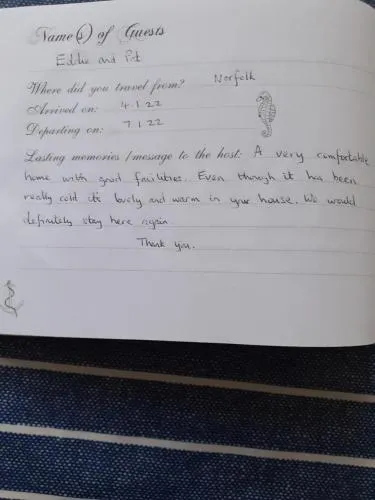 Name(s) of Guests
Eddie and Pat
Where did you travel from? Norfolk
Arrived on: 4.1.22
Departing on: 7.1.22
Lasting memories / message to the host: A very comfortable
home with good facilities. Even though it has been
really cold it's lovely and warm in your house. We would
definitely stay here again.
Thank you.